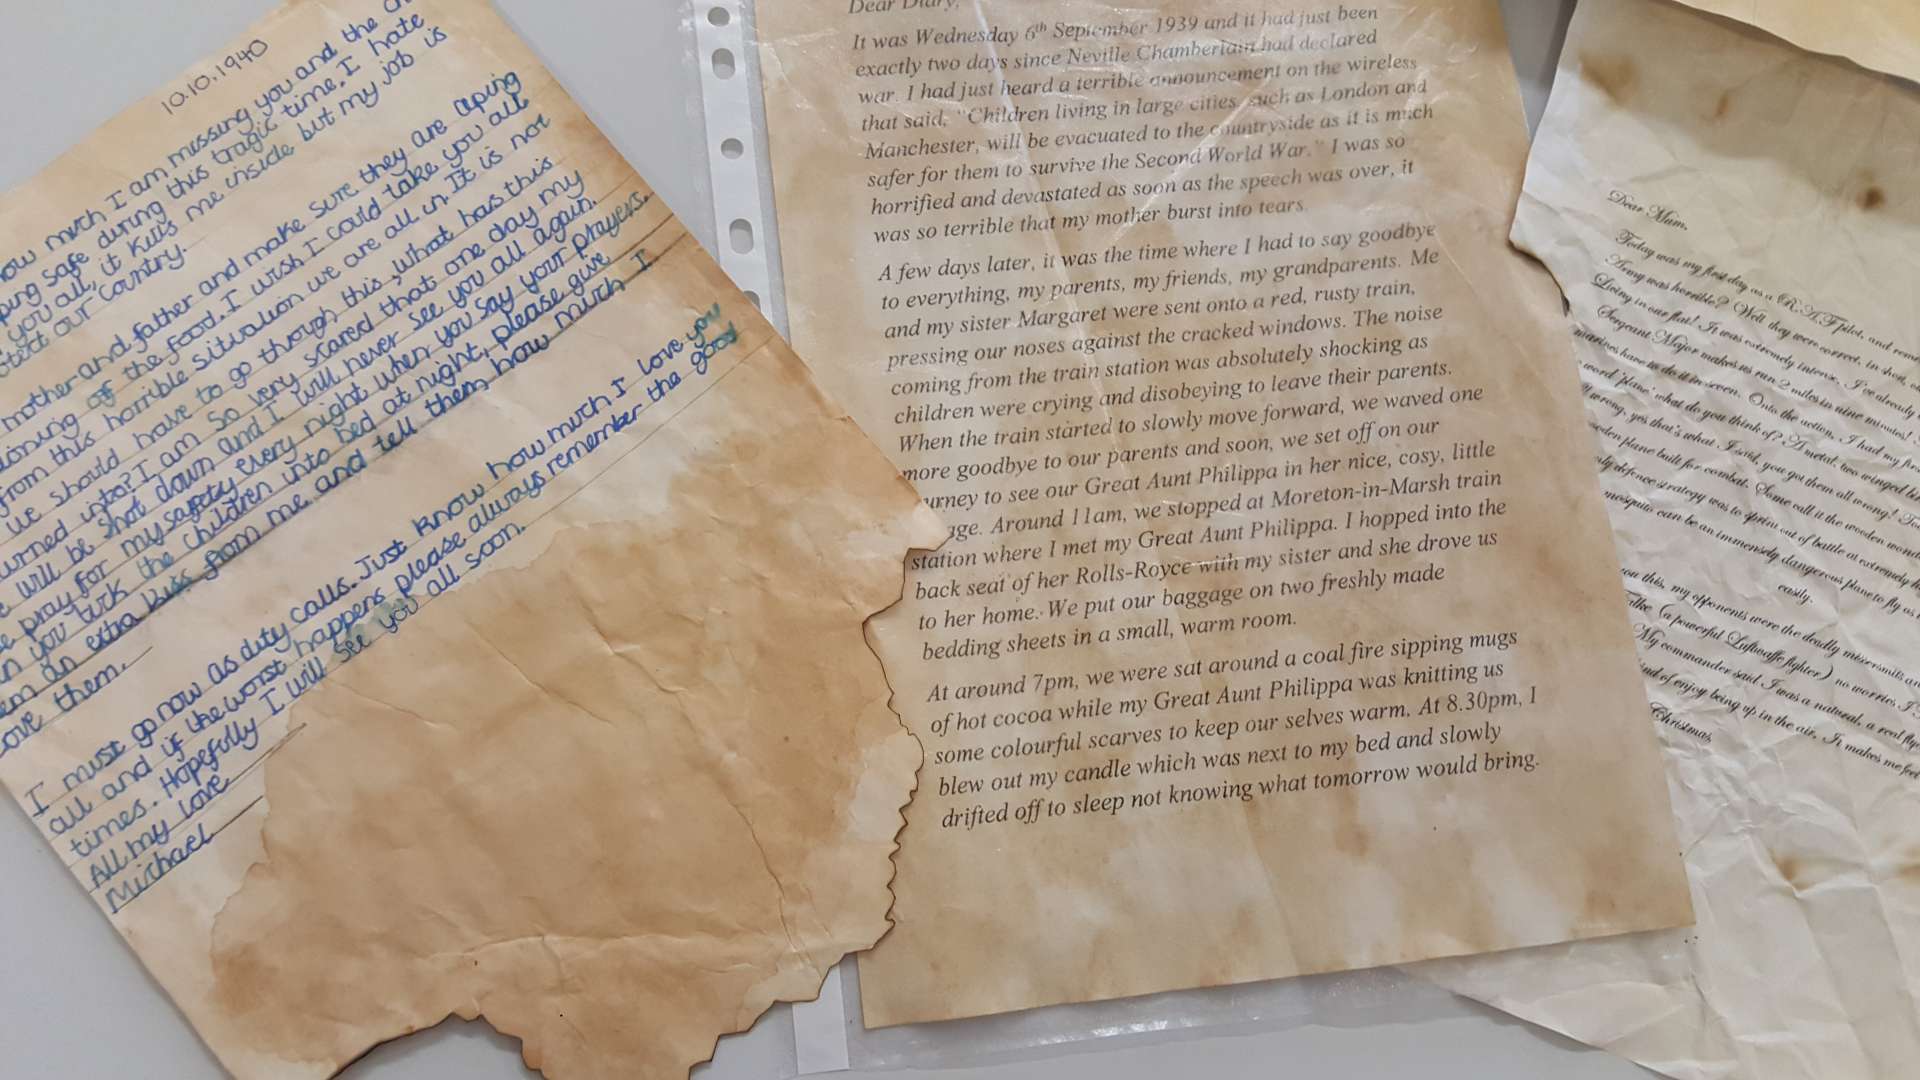 10.10.1940
how much I am missing you and the
safe during this tragic time. I hate
you all, it kills me inside but my job is
our country.
mother and father and make sure they are coping
of the food. I wish I could take you all
from this horrible situation we are all in. It is not
we should have to go through this, what has this
turned into? I am so very scared that one day my
will be shot down and I will never see you all again.
pray for my safety every night when you say your prayers.
you tuck the children into bed at night, please give
an extra kiss from me and tell them how much I
love them.
I must go now as duty calls. Just know how much I love you
all and if the worst happens please always remember the good
times. Hopefully I will see you all soon.
All my love
Michael
Dear Diary,
It was Wednesday 6th September 1939 and it had just been
exactly two days since Neville Chamberlain had declared
war. I had just heard a terrible announcement on the wireless
that said; "Children living in large cities, such as London and
Manchester, will be evacuated to the countryside as it is much
safer for them to survive the Second World War." I was so
horrified and devastated as soon as the speech was over, it
was so terrible that my mother burst into tears.
A few days later, it was the time where I had to say goodbye
to everything, my parents, my friends, my grandparents. Me
and my sister Margaret were sent onto a red, rusty train,
pressing our noses against the cracked windows. The noise
coming from the train station was absolutely shocking as
children were crying and disobeying to leave their parents.
When the train started to slowly move forward, we waved one
more goodbye to our parents and soon, we set off on our
urney to see our Great Aunt Philippa in her nice, cosy, little
age. Around 11am, we stopped at Moreton-in-Marsh train
station where I met my Great Aunt Philippa. I hopped into the
back seat of her Rolls-Royce with my sister and she drove us
to her home. We put our baggage on two freshly made
bedding sheets in a small, warm room.
At around 7pm, we were sat around a coal fire sipping mugs
of hot cocoa while my Great Aunt Philippa was knitting us
some colourful scarves to keep our selves warm. At 8.30pm, I
blew out my candle which was next to my bed and slowly
drifted off to sleep not knowing what tomorrow would bring.
Dear Mum,
Today was my first day as a R.A.F pilot, and
Army was horrible? Well they were correct, in short,
Living in our flat! It was extremely intense, I've already
Sergeant Major makes us run 2 miles in nine minutes!
marines have to do it in seven. Onto the action, I had my
word 'plane' what do you think of? A metal, two winged
wrong, yes that's what I said, you got them all wrong!
plane built for combat. Some call it the wooden
defence strategy was to sprint out of battle at extremely
mosquito can be an immensely dangerous plane to fly as
easily.
on this, my opponents were the deadly
(a powerful Luftwaffe fighter) no worries, I
My commander said I was a natural, a real
kind of enjoy being up in the air. It makes me feel
Christmas,